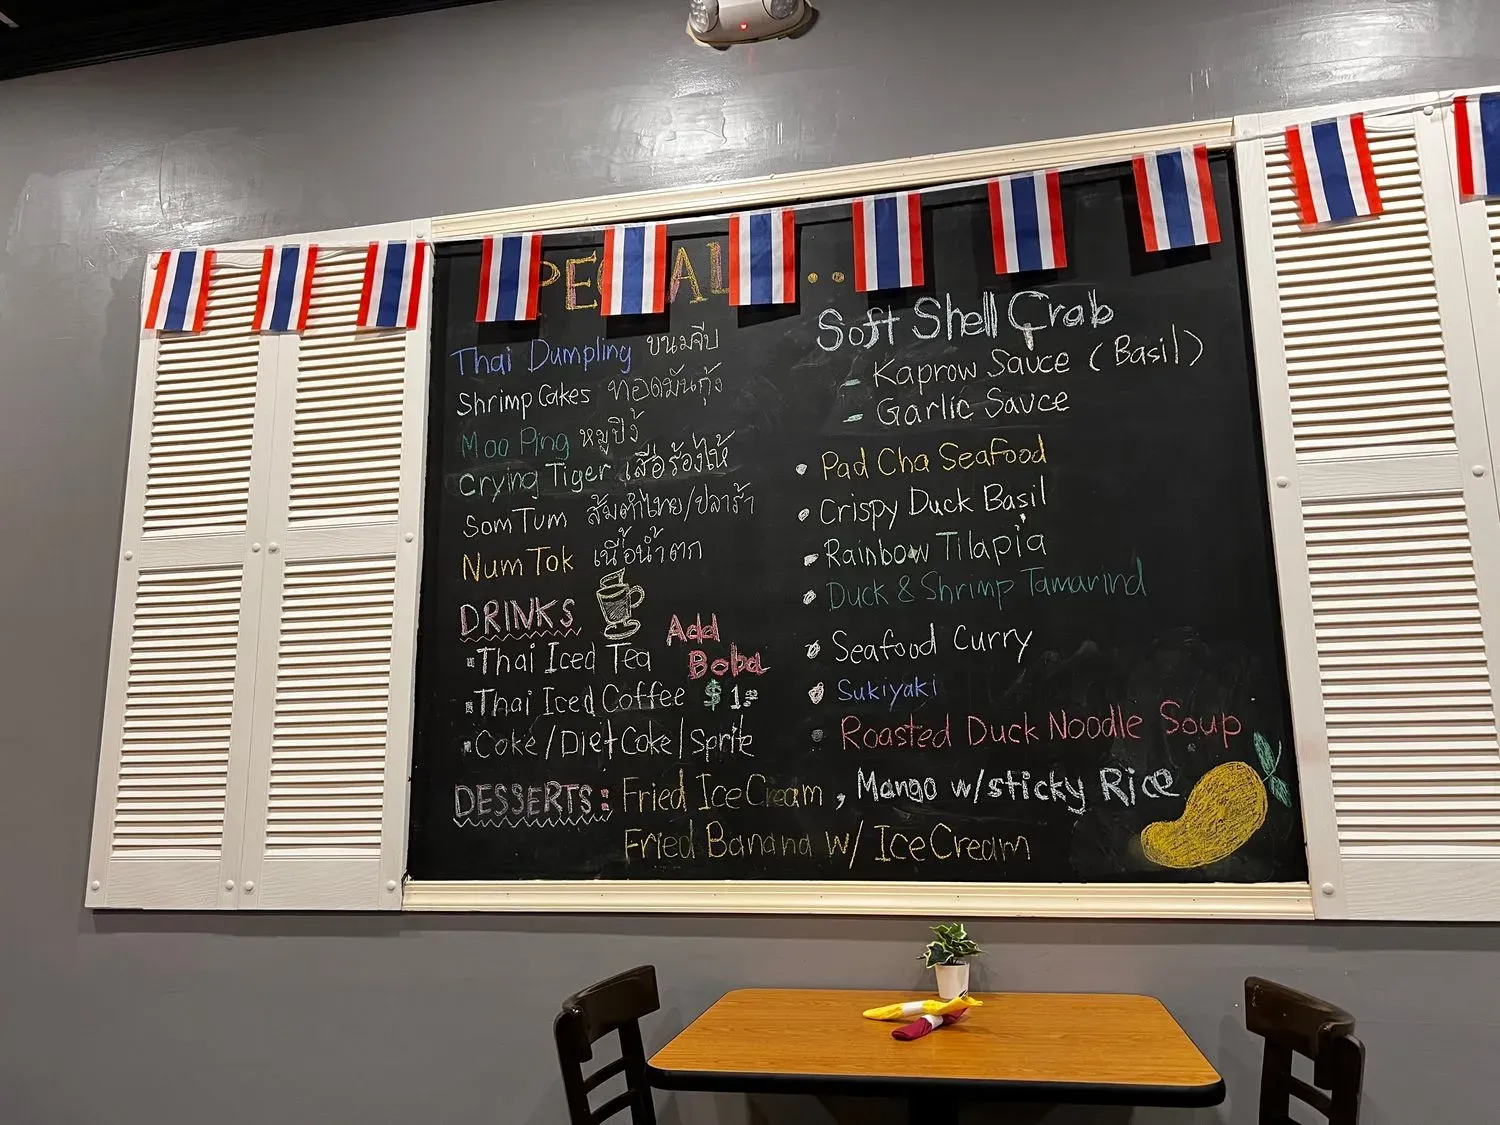 Thai Dumpling ขนมจีบ
Shrimp Cakes ทอดมันกุ้ง
Moo Ping หมูปิ้ง
Crying Tiger เสือร้องไห้
Som Tum ส้มตำไทย/ปลาร้า
Num Tok เนื้อน้ำตก
DRINKS
Thai Iced Tea
Thai Iced Coffee
Coke/Diet Coke/Sprite
Add
Boba
$1.
Soft Shell Crab
- Kaprow Sauce (Basil)
- Garlic Sauce
• Pad Cha Seafood
• Crispy Duck Basil
• Rainbow Tilapia
• Duck & Shrimp Tamarind
• Seafood Curry
• Sukiyaki
• Roasted Duck Noodle Soup
DESSERTS: Fried Ice Cream, Mango w/sticky Rice
Fried Banana w/ Ice Cream